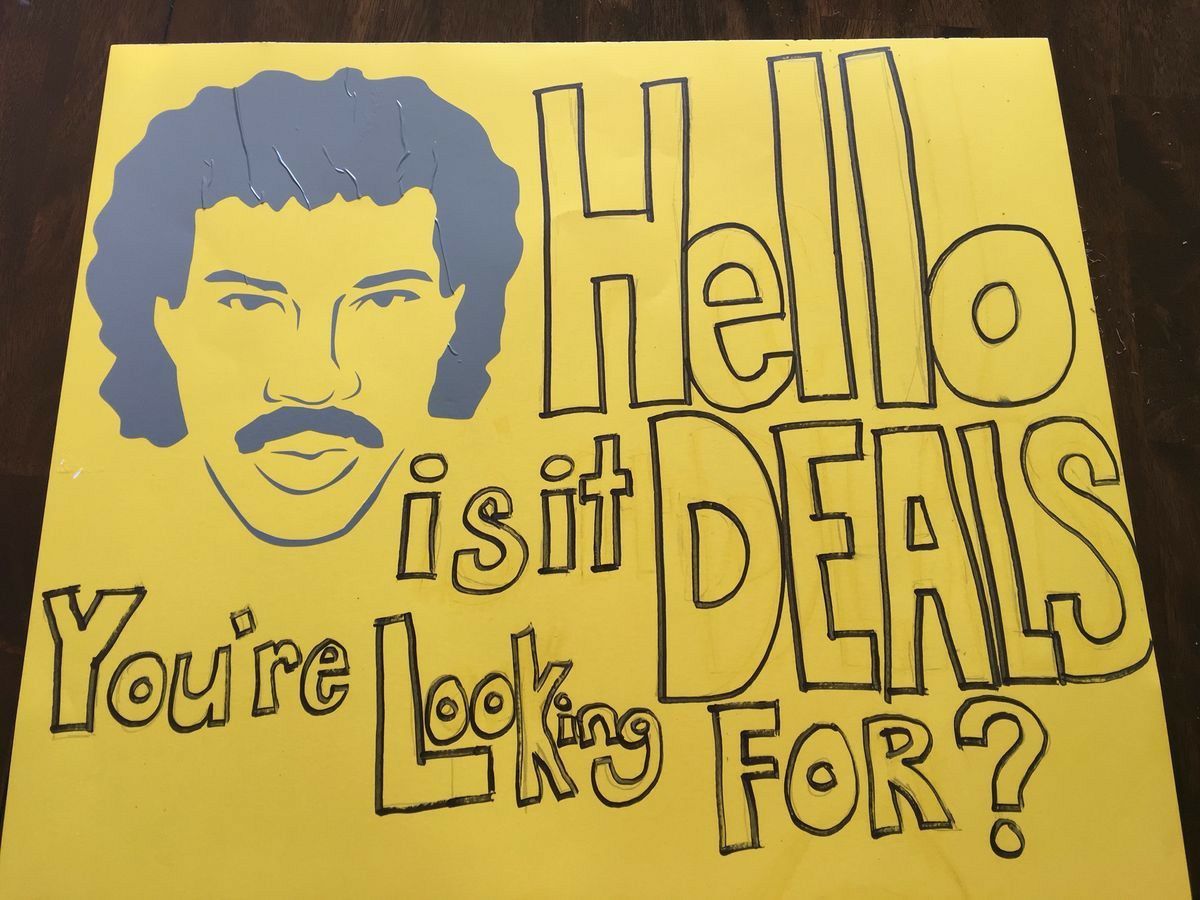 Hello
is it DEALS
You're Looking FOR?